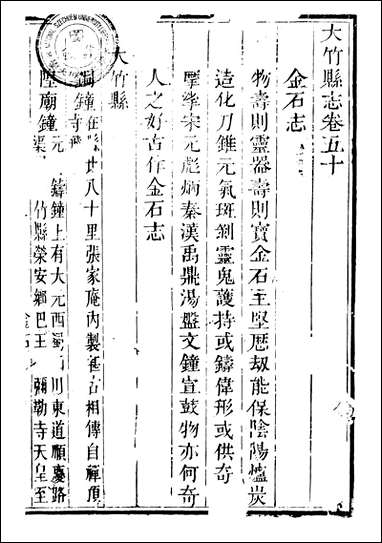 大竹縣志卷五十
金石志
物壽則靈器壽則寶金石主堅歴刼能保陰陽爐炭
造化刀錐元氣斑剝靈鬼護持或鑄偉形或供奇
摩挲宋元彪炳秦漢禹鼎湯盤文鐘宣鼓物亦何奇
人之好古作金石志
大竹縣
銅鐘在縣北八十里張家庵內製甚古相傳自禪頂
寺飛
墜廟鐘元 鑄鐘上有大元西蜀 川東道順慶路
渠 竹縣榮安鄉巴王 彌勒寺天皇至
金石